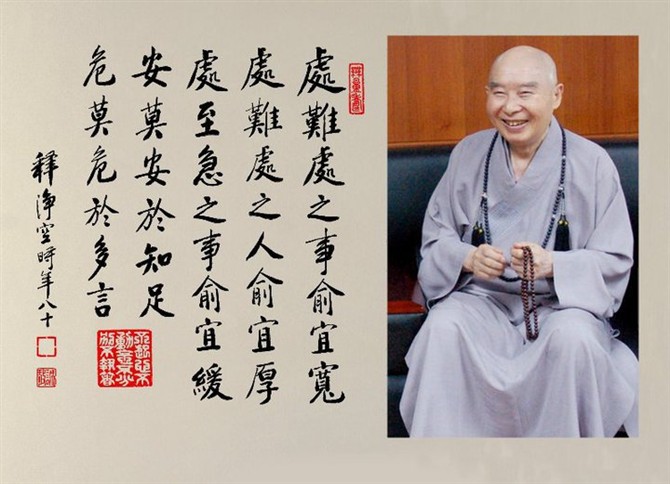 無量壽
處難處之事俞宜寬
處難處之人俞宜厚
處至急之事俞宜緩
安莫安於知足
危莫危於多言
釋淨空時年八十